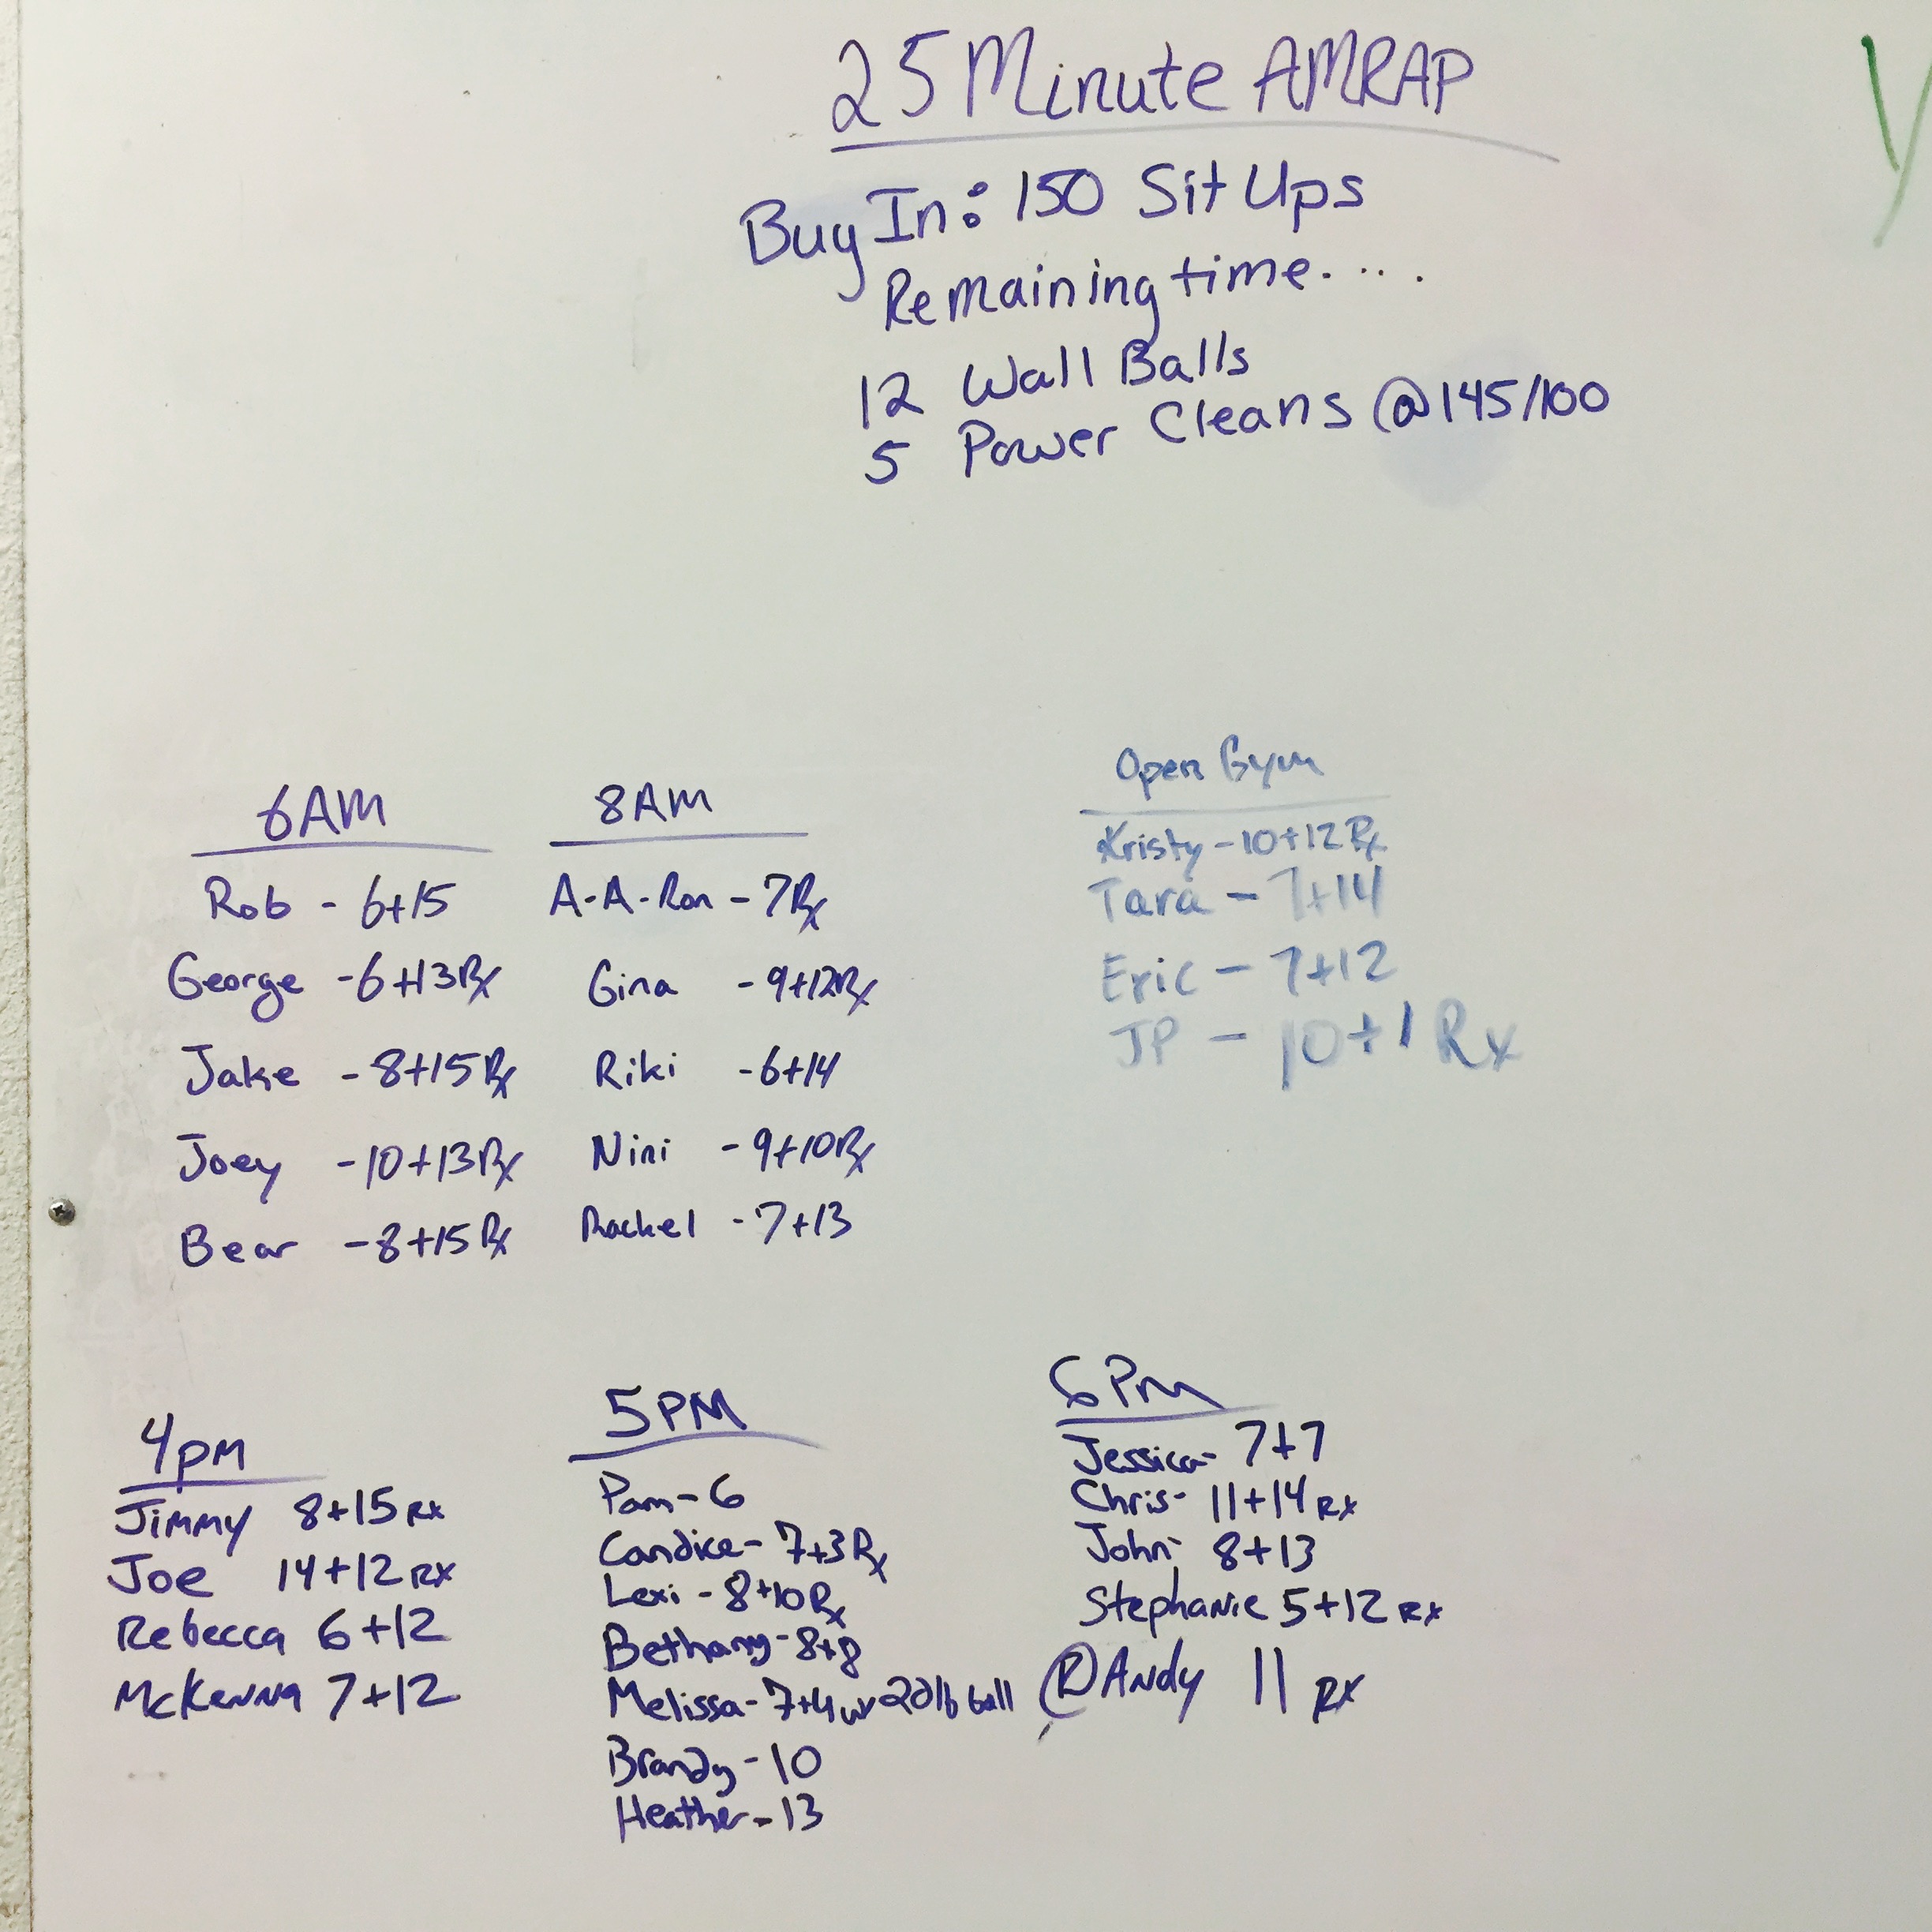 25 Minute AMRAP
Buy In: 150 Sit Ups
Remaining time....
12 Wall Balls
5 Power Cleans @145/100
6AM
Rob - 6+15
George -6+13Rx
Jake -8+15Rx
Joey -10+13Rx
Bear -8+15Rx
8AM
A-A-Ron - 7Rx
Gina -9+12Rx
Riki -6+14
Nini -9+10Rx
Rachel -7+13
Open Gym
Kristy -10+12Rx
Tara - 7+14
Eric - 7+12
JP - 10+1 Rx
4pm
Jimmy 8+15 Rx
Joe 14+12 Rx
Rebecca 6+12
McKenna 7+12
5PM
Pam - 6
Candice - 7+3Rx
Lexi - 8+10Rx
Bethany - 8+8
Melissa - 7+4 w 20lb ball
Brandy - 10
Heather - 13
6PM
Jessica- 7+7
Chris- 11+14 Rx
John- 8+13
Stephanie 5+12 Rx
Andy 11 Rx